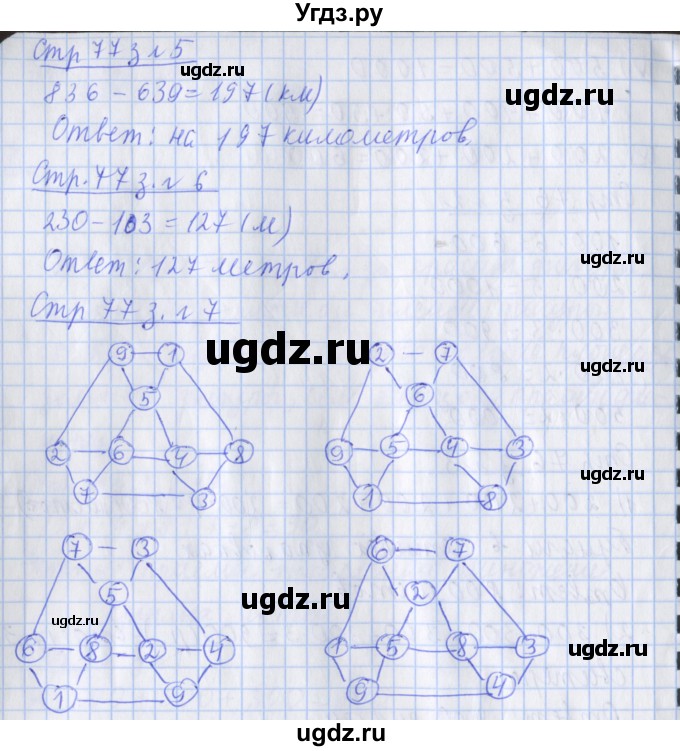 Угдз.ру
Стр 77 з. г 5
836 - 639 = 197 (км)
Ответ: на 197 километров.
Стр. 77 з. г 6
230 - 103 = 127 (м)
Ответ: 127 метров.
Стр 77 з. г 7
ugdz.ru
ugdz.ru
ugdz.ru
ugdz.ru
ugdz.ru
ugdz.ru
ugdz.ru
ugdz.ru
ugdz.ru
ugdz.ru
9 1
5
2 6 4 8
7 3
2 7
6
9 5 4 3
1 8
7 3
5
6 8 2 4
1 9
6 7
2
1 5 8 3
9 4